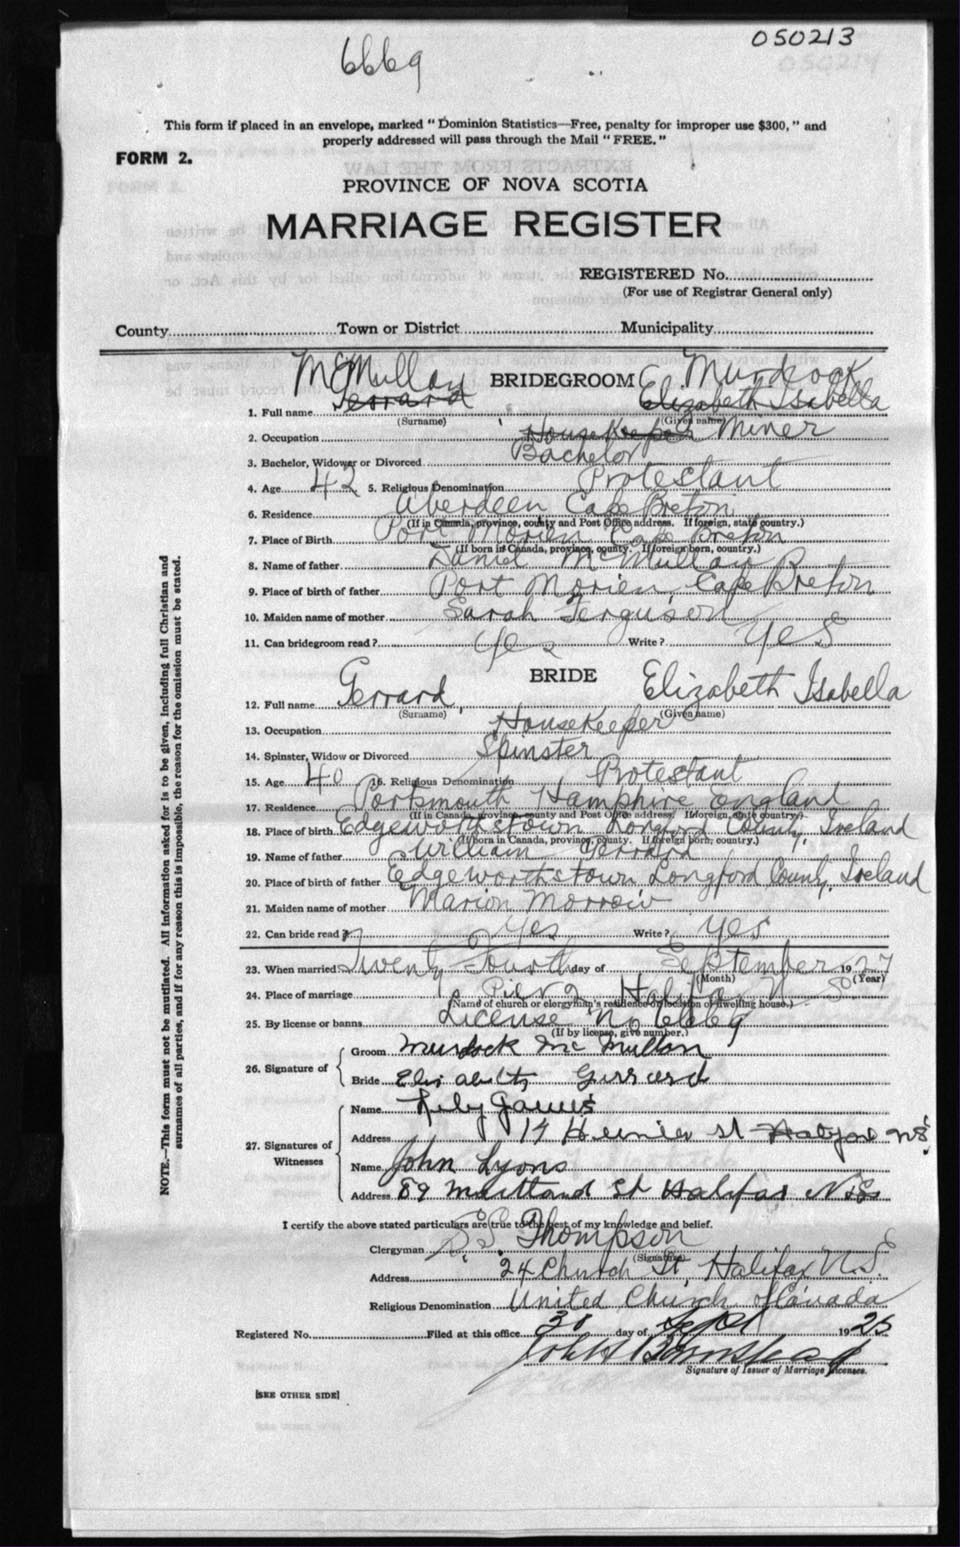 050213
6669
This form if placed in an envelope, marked "Dominion Statistics—Free, penalty for improper use $300," and
properly addressed will pass through the Mail "FREE."
FORM 2.
PROVINCE OF NOVA SCOTIA
MARRIAGE REGISTER
REGISTERED No.
(For use of Registrar General only)
County Town or District Municipality
McMullay BRIDEGROOM Murdock
1. Full name Gerrard Elizabeth Isabella
(Surname) (Given name)
2. Occupation Housekeeper Miner
3. Bachelor, Widower or Divorced Bachelor
4. Age 42 5. Religious Denomination Protestant
6. Residence Aberdeen Cape Breton
(If in Canada, province, county and Post Office address. If foreign, state country.)
7. Place of Birth Port Morien Cape Breton
(If born in Canada, province, county. If foreign born, country.)
8. Name of father Daniel McMullay
9. Place of birth of father Port Morien, Cape Breton
10. Maiden name of mother Sarah Ferguson
11. Can bridegroom read? Yes Write? Yes
BRIDE
12. Full name Gerrard, Elizabeth Isabella
(Surname) (Given name)
13. Occupation Housekeeper
14. Spinster, Widow or Divorced Spinster
15. Age 40 16. Religious Denomination Protestant
17. Residence Portsmouth Hamphire England
(If in Canada, province, county and Post Office address. If foreign, state country.)
18. Place of birth Edgeworthstown Longford County, Ireland
(If born in Canada, province, county. If foreign born, country.)
19. Name of father William Gerrard
20. Place of birth of father Edgeworthstown Longford County, Ireland
21. Maiden name of mother Marion Morrow
22. Can bride read? Yes Write? Yes
23. When married Twenty Fourth day of September 1927
(Month) (Year)
24. Place of marriage Pier 2 Halifax N. S.
(Name of church or clergyman's residence or location of dwelling house.)
25. By license or banns License No 6669
(If by license, give number.)
26. Signature of
Groom Murdock Mc Mullan
Bride Elizabeth Gerrard
27. Signatures of Witnesses
Name Lily
Address 14 St Halifax NS.
Name John Lyons
Address 89 Maitland St Halifax N.S.
I certify the above stated particulars are true to the best of my knowledge and belief.
Clergyman Thompson
(Signature)
Address 24 Church St, Halifax N.S.
Religious Denomination United Church of Canada
Registered No. Filed at this office 30 day of Sept 19
John
Signature of Issuer of Marriage Licenses.
[SEE OTHER SIDE]
NOTE.—This form must not be mutilated. All information asked for is to be given, including full Christian and
surnames of all parties, and if for any reason this is impossible, the reason for the omission must be stated.